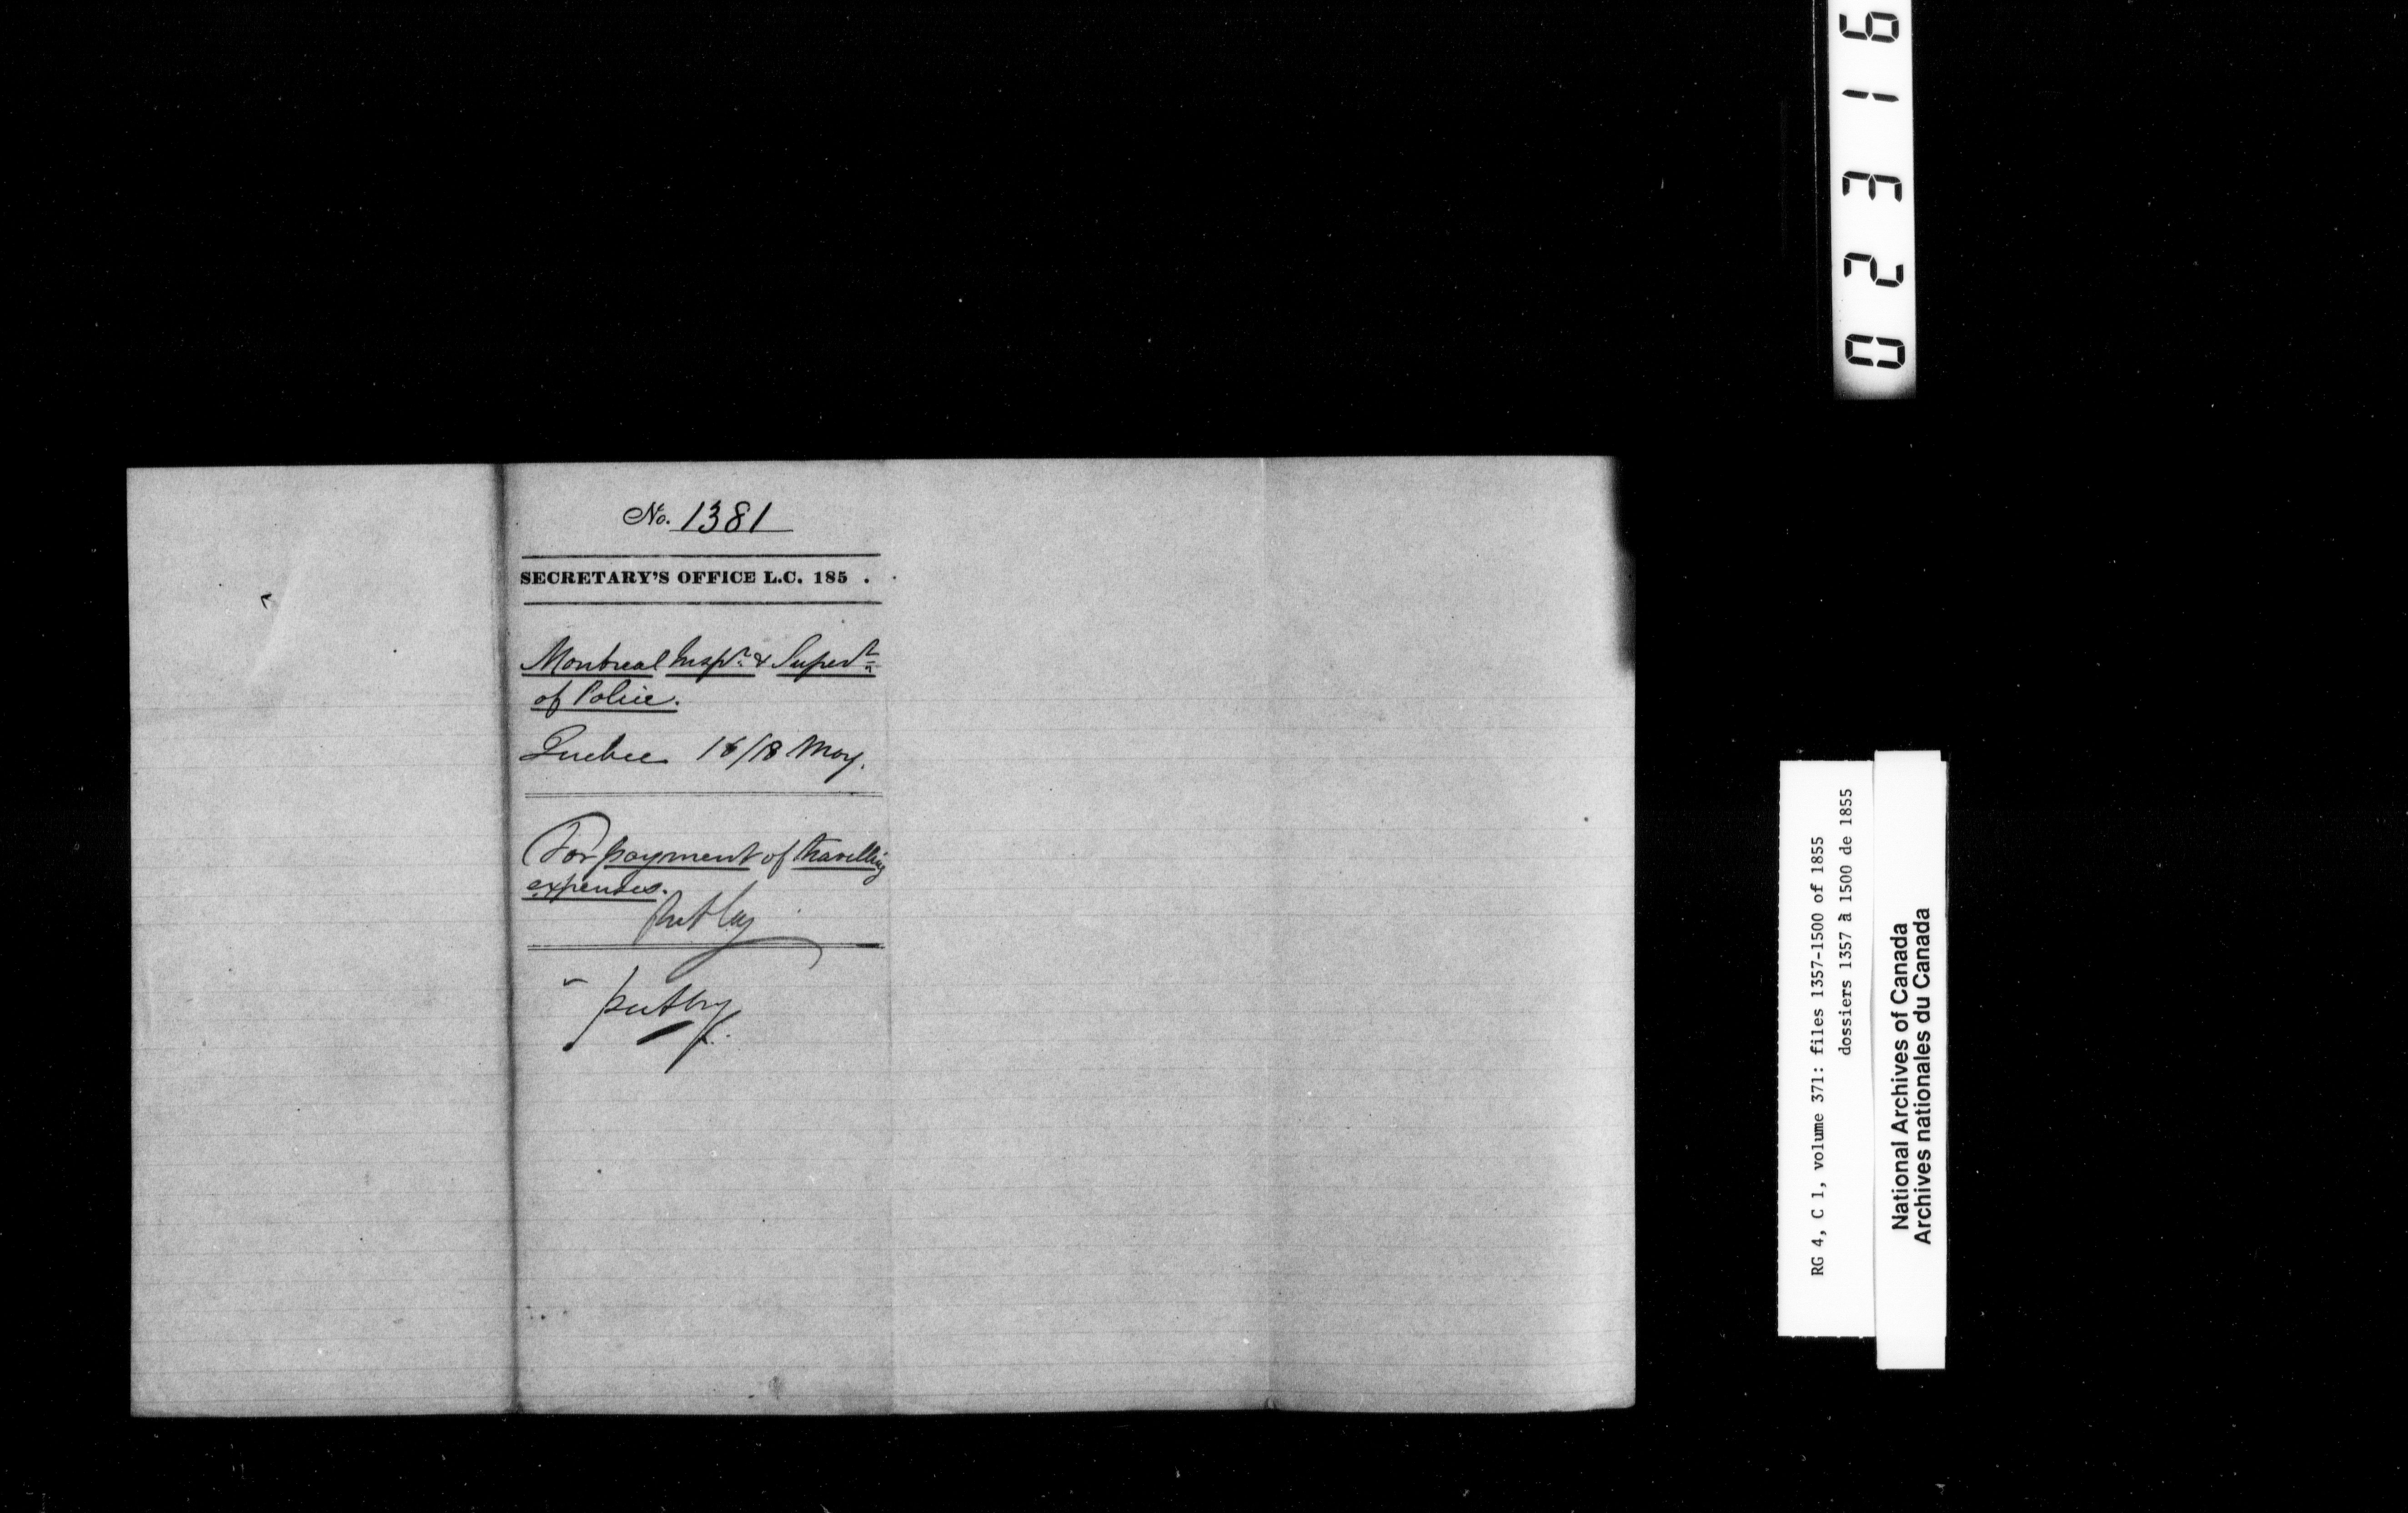 No. 1381
SECRETARY'S OFFICE L.C. 185 .
Montreal Inspr. & Supert.
of Police.
Quebec 16/18 May.
For payment of travelling
expenses.
Put by
put by
02316
RG 4, C 1, volume 371: files 1357-1500 of 1855
dossiers 1357 à 1500 de 1855
National Archives of Canada
Archives nationales du Canada